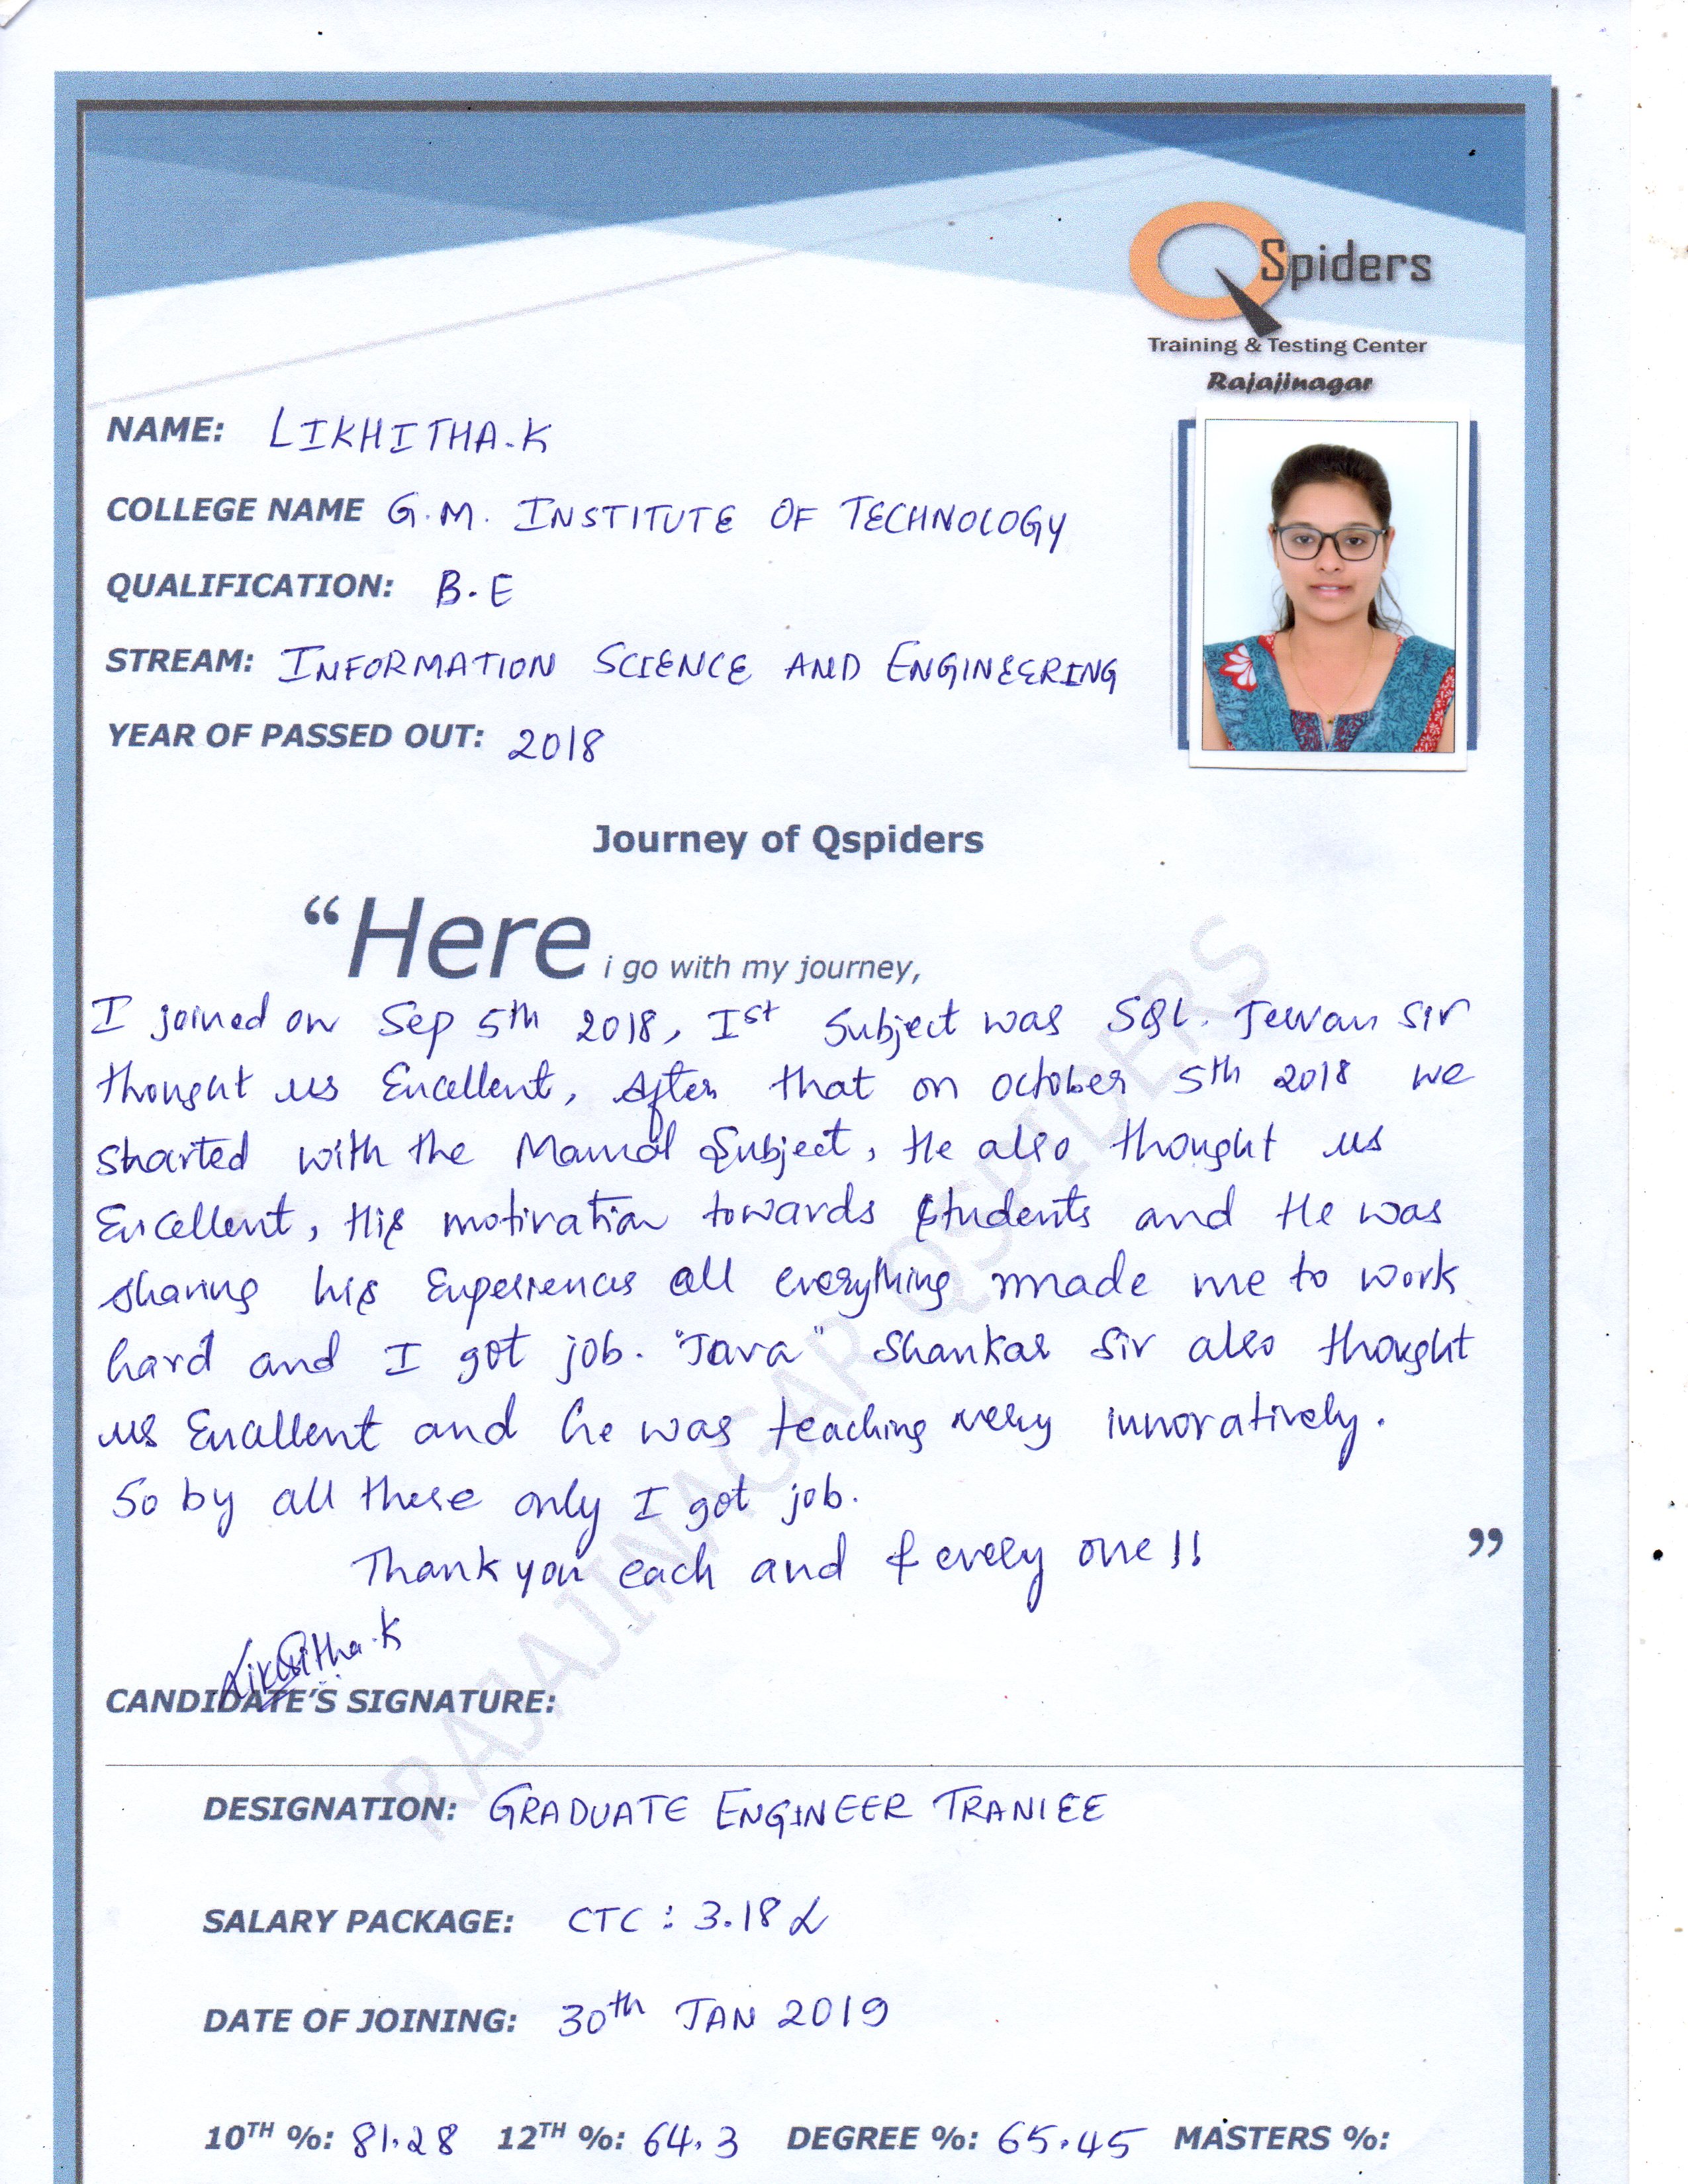 QSpiders
Training & Testing Center
Rajajinagar
NAME: LIKHITHA.K
COLLEGE NAME G.M. INSTITUTE OF TECHNOLOGY
QUALIFICATION: B.E
STREAM: INFORMATION SCIENCE AND ENGINEERING
YEAR OF PASSED OUT: 2018
Journey of Qspiders
“Here i go with my journey,
I joined on Sep 5th 2018, Ist Subject was SQL. Jeevan Sir
thought us Excellent, After that on october 5th 2018 we
started with the Manual Subject, He also thought us
Excellent, His motivation towards students and He was
sharing his Experiences all everything made me to work
hard and I got job. "Java" Shankar Sir also thought
us Excellent and he was teaching very innovatively.
So by all these only I got job.
Thank you each and & every one !!
”
Likhitha.K
CANDIDATE’S SIGNATURE:
RAJAJINAGAR QSPIDERS
DESIGNATION: GRADUATE ENGINEER TRANIEE
SALARY PACKAGE: CTC : 3.18 L
DATE OF JOINING: 30th JAN 2019
10TH %: 81.28 12TH %: 64.3 DEGREE %: 65.45 MASTERS %: